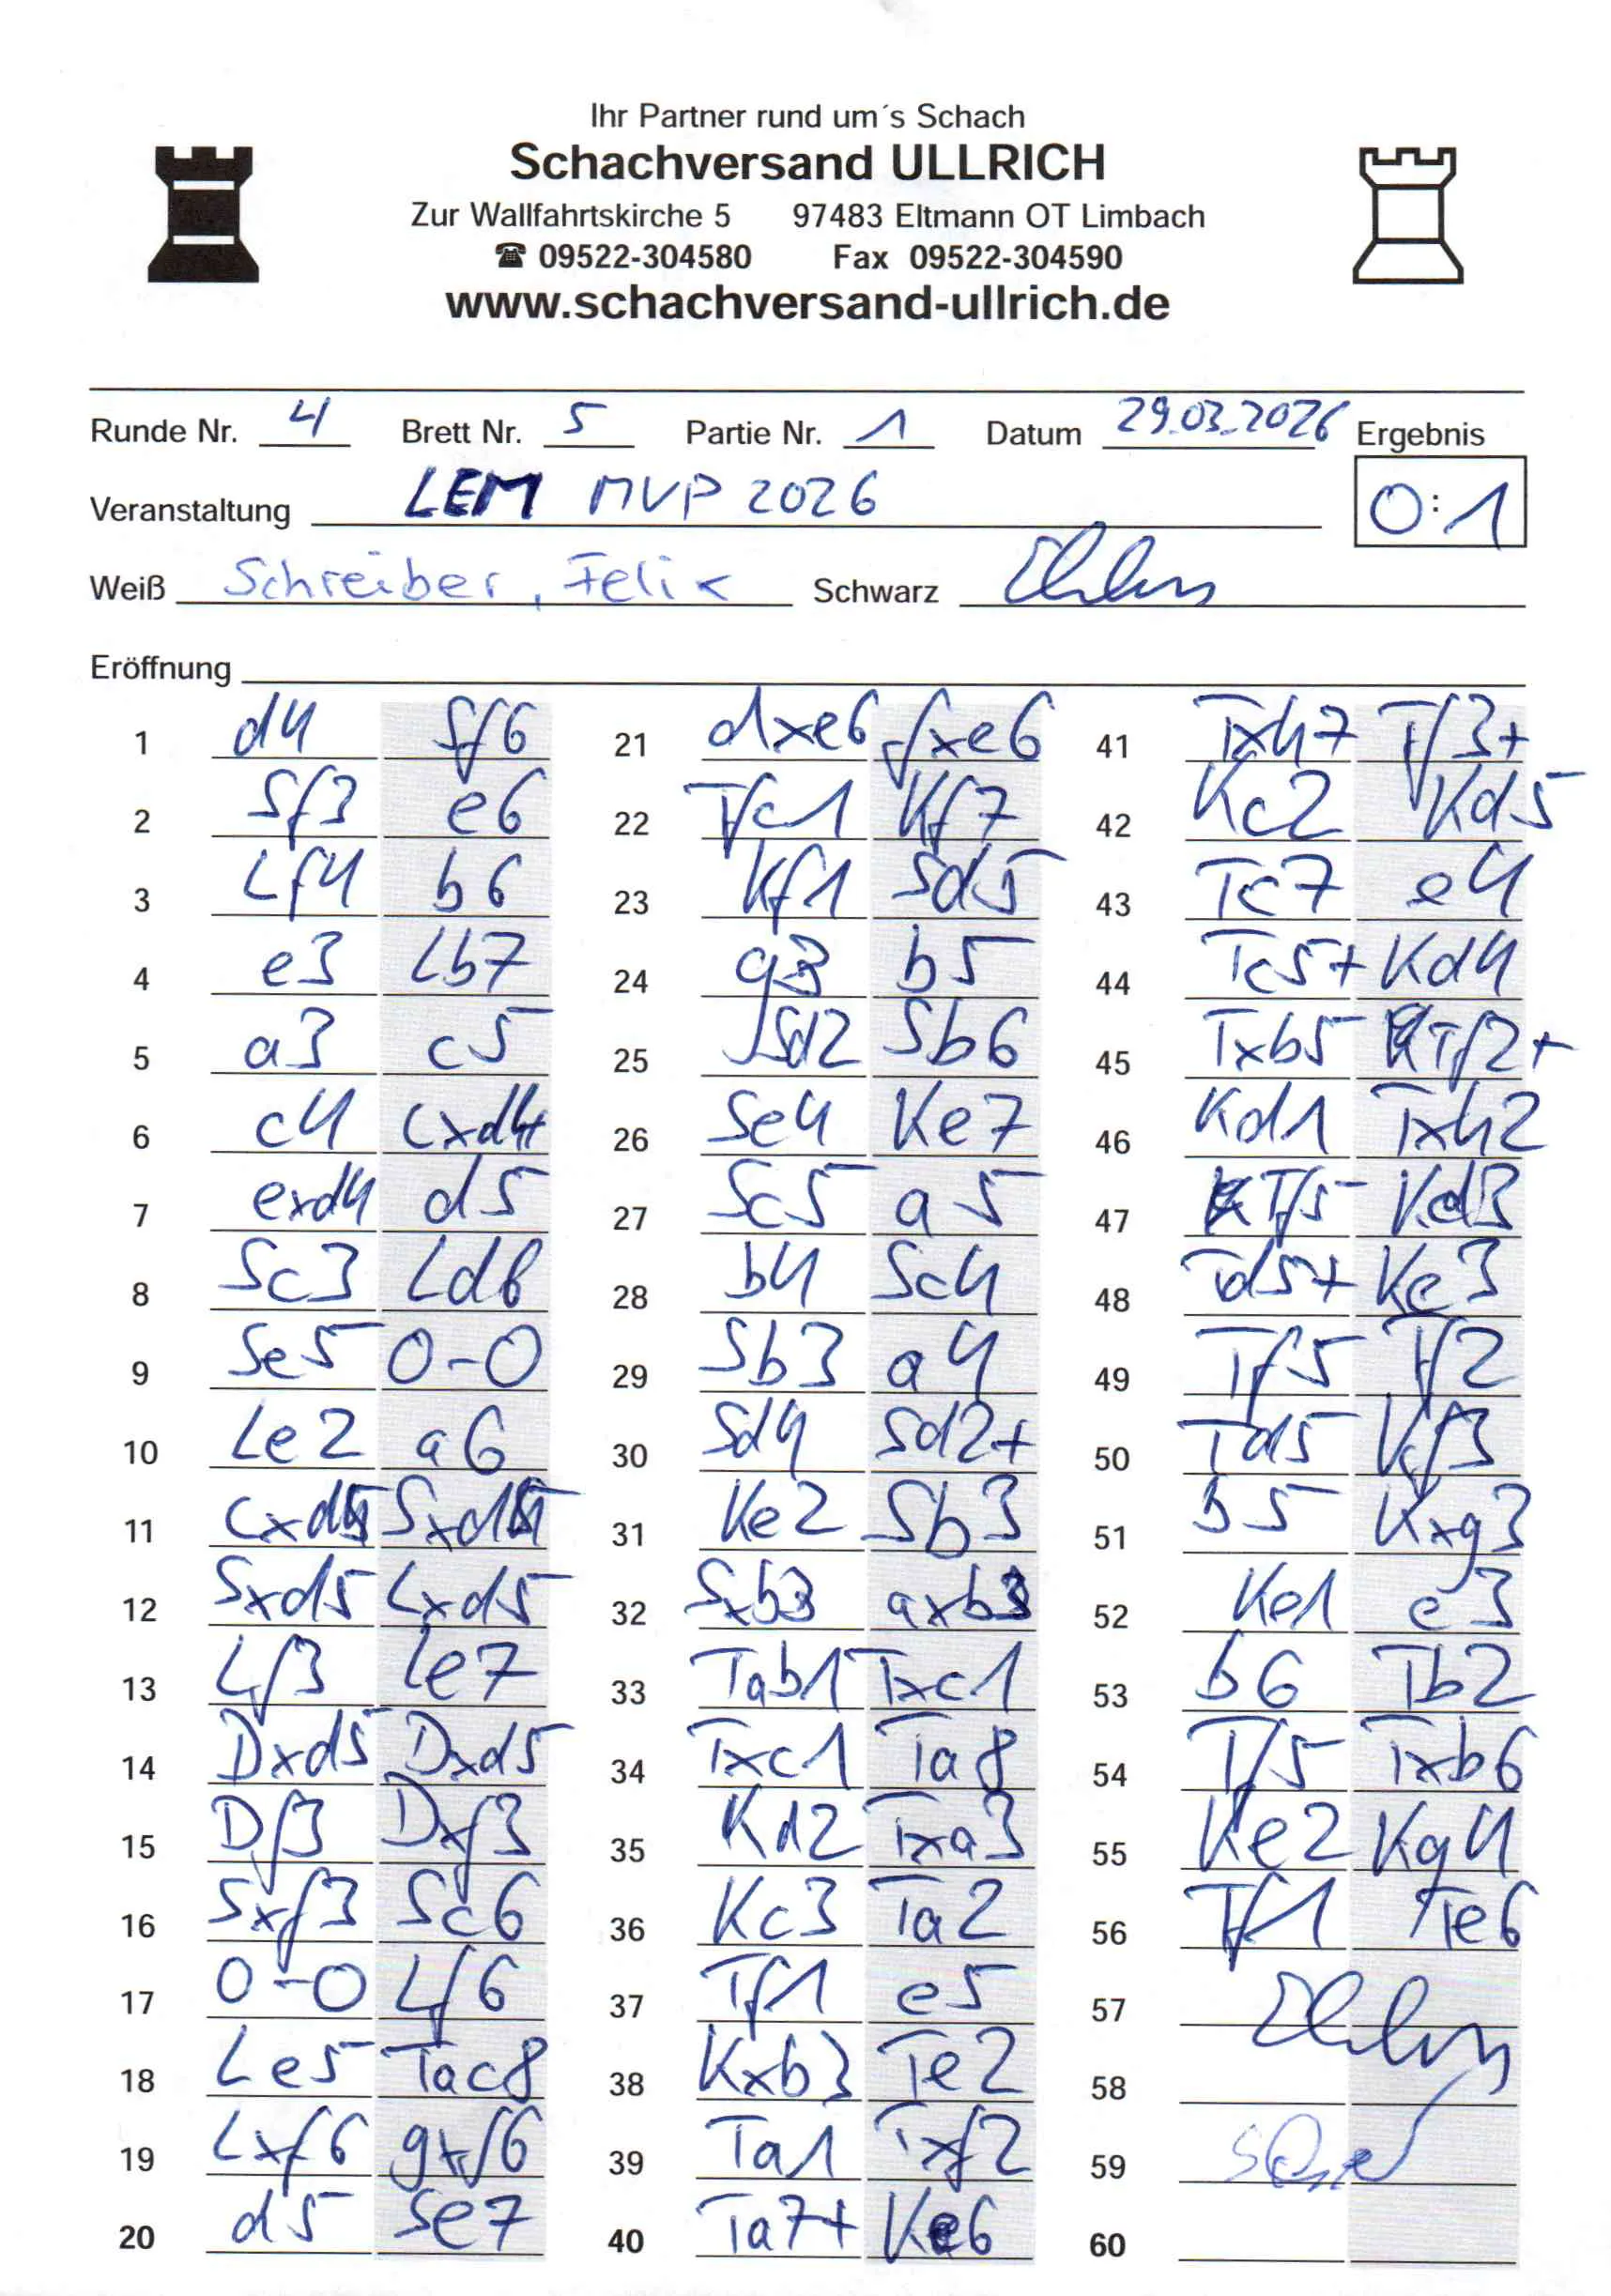 Ihr Partner rund um´s Schach
Schachversand ULLRICH
Zur Wallfahrtskirche 5 97483 Eltmann OT Limbach
☎ 09522-304580 Fax 09522-304590
www.schachversand-ullrich.de
Runde Nr. 4 Brett Nr. 5 Partie Nr. 1 Datum 29.03.2026 Ergebnis
Veranstaltung LEM MVP 2026 0:1
Weiß Schreiber, Felix Schwarz
Eröffnung
1 d4 Sf6 21 dxe6 fxe6 41 Txh7 Tf3+
2 Sf3 e6 22 Tfc1 Kf7 42 Kc2 Kd5
3 Lf4 b6 23 Kf1 Sd5 43 Tc7 e4
4 e3 Lb7 24 g3 b5 44 Tc5+ Kd4
5 a3 c5 25 Sd2 Sb6 45 Txb5 Tf2+
6 c4 cxd4 26 Se4 Ke7 46 Kd1 Txh2
7 exd4 d5 27 Sc5 a5 47 Tf5 Kd3
8 Sc3 Ld6 28 b4 Sc4 48 Td5+ Ke3
9 Se5 0-0 29 Sb3 a4 49 Tf5 Tf2
10 Le2 a6 30 Sd4 Sd2+ 50 Td5 Kf3
11 cxd5 Sxd5 31 Ke2 Sb3 51 b5 Kxg3
12 Sxd5 Lxd5 32 Sxb3 axb3 52 Ke1 e3
13 Lf3 Le7 33 Tab1 Txc1 53 b6 Tb2
14 Dxd5 Dxd5 34 Txc1 Ta8 54 Tf5 Txb6
15 Df3 Dxf3 35 Kd2 Txa3 55 Ke2 Kg4
16 Sxf3 Sc6 36 Kc3 Ta2 56 Tf1 Te6
17 0-0 Lf6 37 Tf1 e5 57
18 Le5 Tac8 38 Kxb3 Te2 58
19 Lxf6 gxf6 39 Ta1 Txf2 59
20 d5 Se7 40 Ta7+ Ke6 60